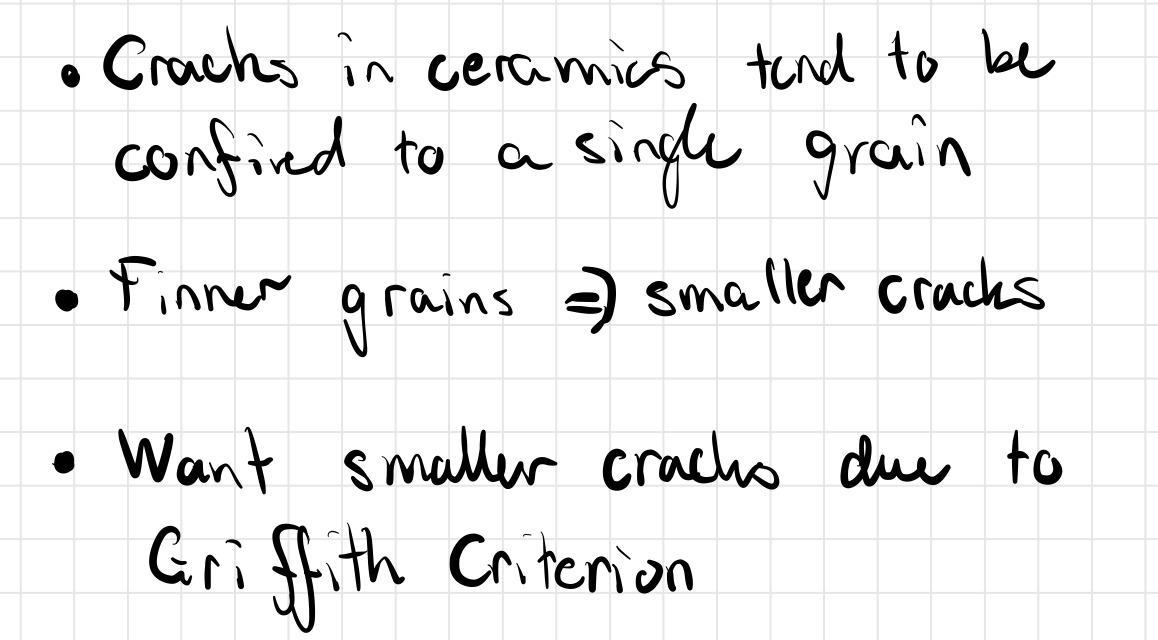 • Cracks in ceramics tend to be
confined to a single grain
• Finner grains => smaller cracks
• Want smaller cracks due to
Griffith Criterion